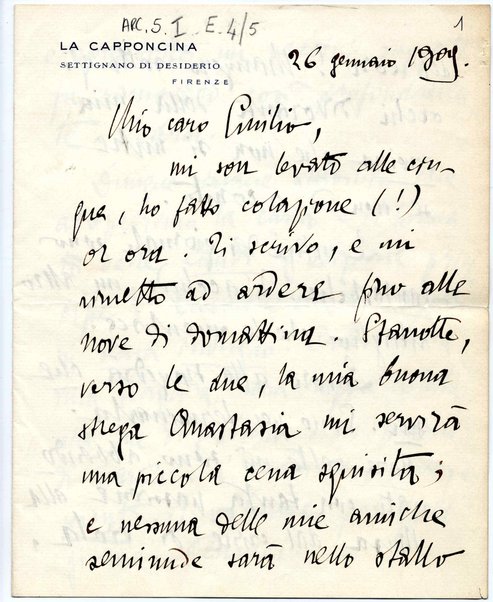 ARC. 5. I E. 4/5
1
LA CAPPONCINA
SETTIGNANO DI DESIDERIO
FIRENZE
26 gennaio 1909.
Mio caro Emilio,
mi son levato alle cin-
que, ho fatto colazione (!)
or ora. Ti scrivo, e mi
rimetto ad ardere fino alle
nove di domattina. Stanotte,
verso le due, la mia buona
strega Anastasia mi servirà
una piccola cena squisita;
e nessuna delle mie amiche
seminude sarà nello stallo